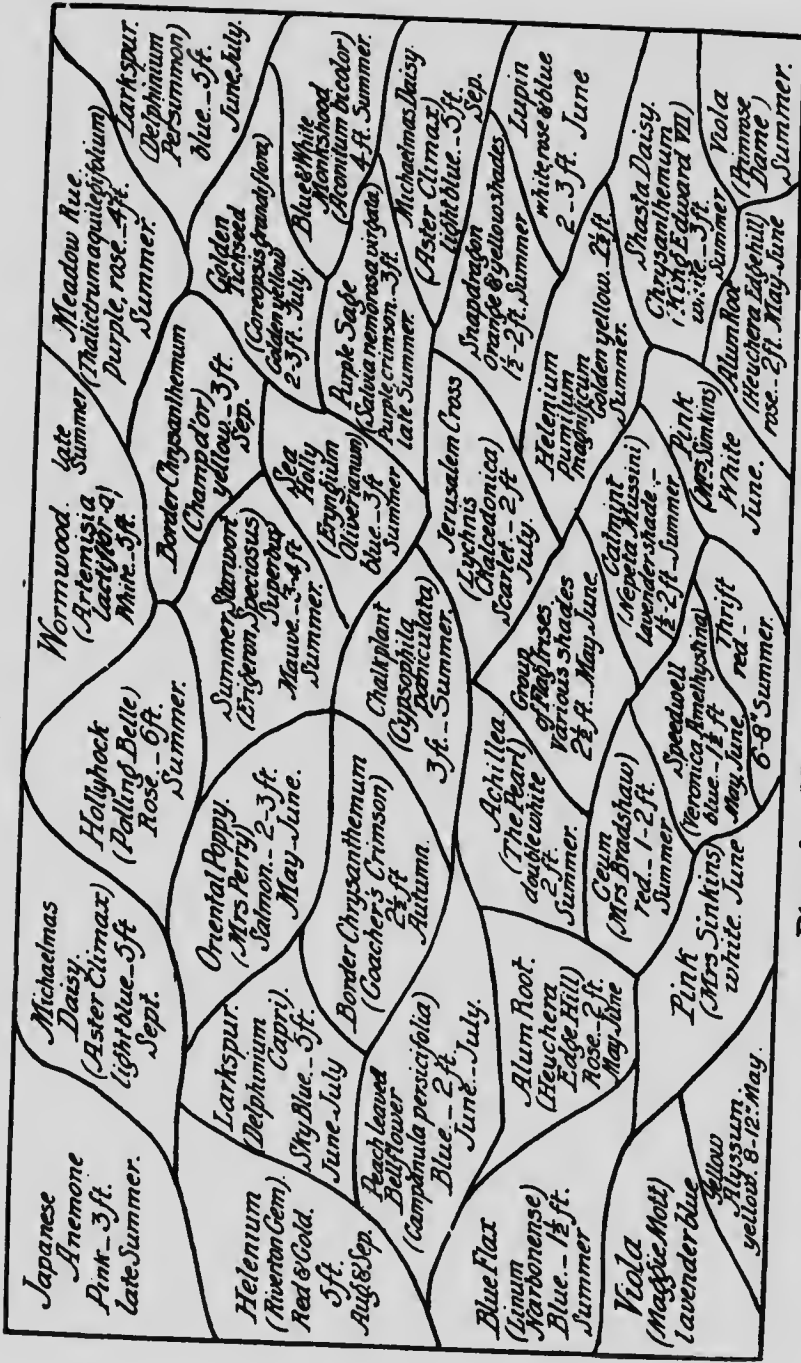 Japanese
Anemone
Pink_3ft.
late Summer.
Michaelmas
Daisy.
(Aster Climax)
light blue_5ft
Sept.
Hollyhock
(Polling Belle)
Rose._6ft.
Summer.
Wormwood. late
(Artemisia Summer
lactiflora)
White_5ft.
Meadow Rue.
(Thalictrum aquilegifolium)
Purple, rose._4ft.
Summer.
Larkspur.
(Delphinium
Persimmon)
blue._5ft.
June, July.
Helenium
(Riverton Gem).
Red & Gold.
5ft.
Aug & Sep.
Larkspur.
(Delphinium
Capri).
Sky Blue._5ft.
June-July
Oriental Poppy.
(Mrs Perry)
Salmon._2-3ft.
May-June.
Summer Starwort
(Erigeron Speciosus)
Superbus
Mauve._3-4ft
Summer.
Border Chrysanthemum
(Champ d'or)
yellow._3ft.
Sep.
Golden
Tickseed
(Coreopsis grandiflora)
Golden yellow
2-3ft. July.
Blue & White
Monkshood
(Aconitum bicolor)
4-ft. Summer.
Peach leaved
Bellflower
(Campanula persicifolia)
Blue._2ft.
June._July.
Border Chrysanthemum
(Goacher's Crimson)
2½ft
Autumn.
Chalkplant
(Gypsophila
paniculata)
3ft._Summer.
Sea
Holly
(Eryngium
Oliverianum)
blue._3ft
Summer
Purple Sage
(Salvia nemorosa virgata)
Purple crimson._3ft
late Summer
Michaelmas Daisy.
(Aster Climax)
light blue._5ft.
Sep.
Blue Flax
(Linum
Narbonense)
Blue._1½ft.
Summer
Alum Root.
(Heuchera
Edge Hill)
Rose._2ft.
May-June
Achillea
(The Pearl)
double white
2ft.
Summer.
Group
of Flag Irises
Various shades
2½ft. May-June.
Jerusalem Cross
(Lychnis
Chalcedonica)
Scarlet._2ft
July.
Helenium
pumilum
magnificum
Golden yellow._2½ft.
Summer.
Snapdragon
Orange & yellow shades
1½-2ft. Summer
Lupin
white, rose & blue
2-3ft. June
Viola
(Maggie Mott)
lavender blue
Yellow
Alyssum.
yellow. 8-12". May.
Pink
(Mrs Sinkins)
white. June
Geum
(Mrs Bradshaw)
red._1-2ft.
Summer
Speedwell
(Veronica Amethystina)
blue._1½ft
May, June.
Thrift
red_
6-8" Summer.
Catmint
(Nepeta Mussini)
lavender shade._
1½-2ft._Summer
Pink
(Mrs. Sinkins)
White
June.
Shasta Daisy.
Chrysanthemum
(King Edward VII)
white._3ft.
Summer
Alum Root
(Heuchera Edgehill)
rose._2ft. May-June
Viola
(Primrose
Dame)
Summer.